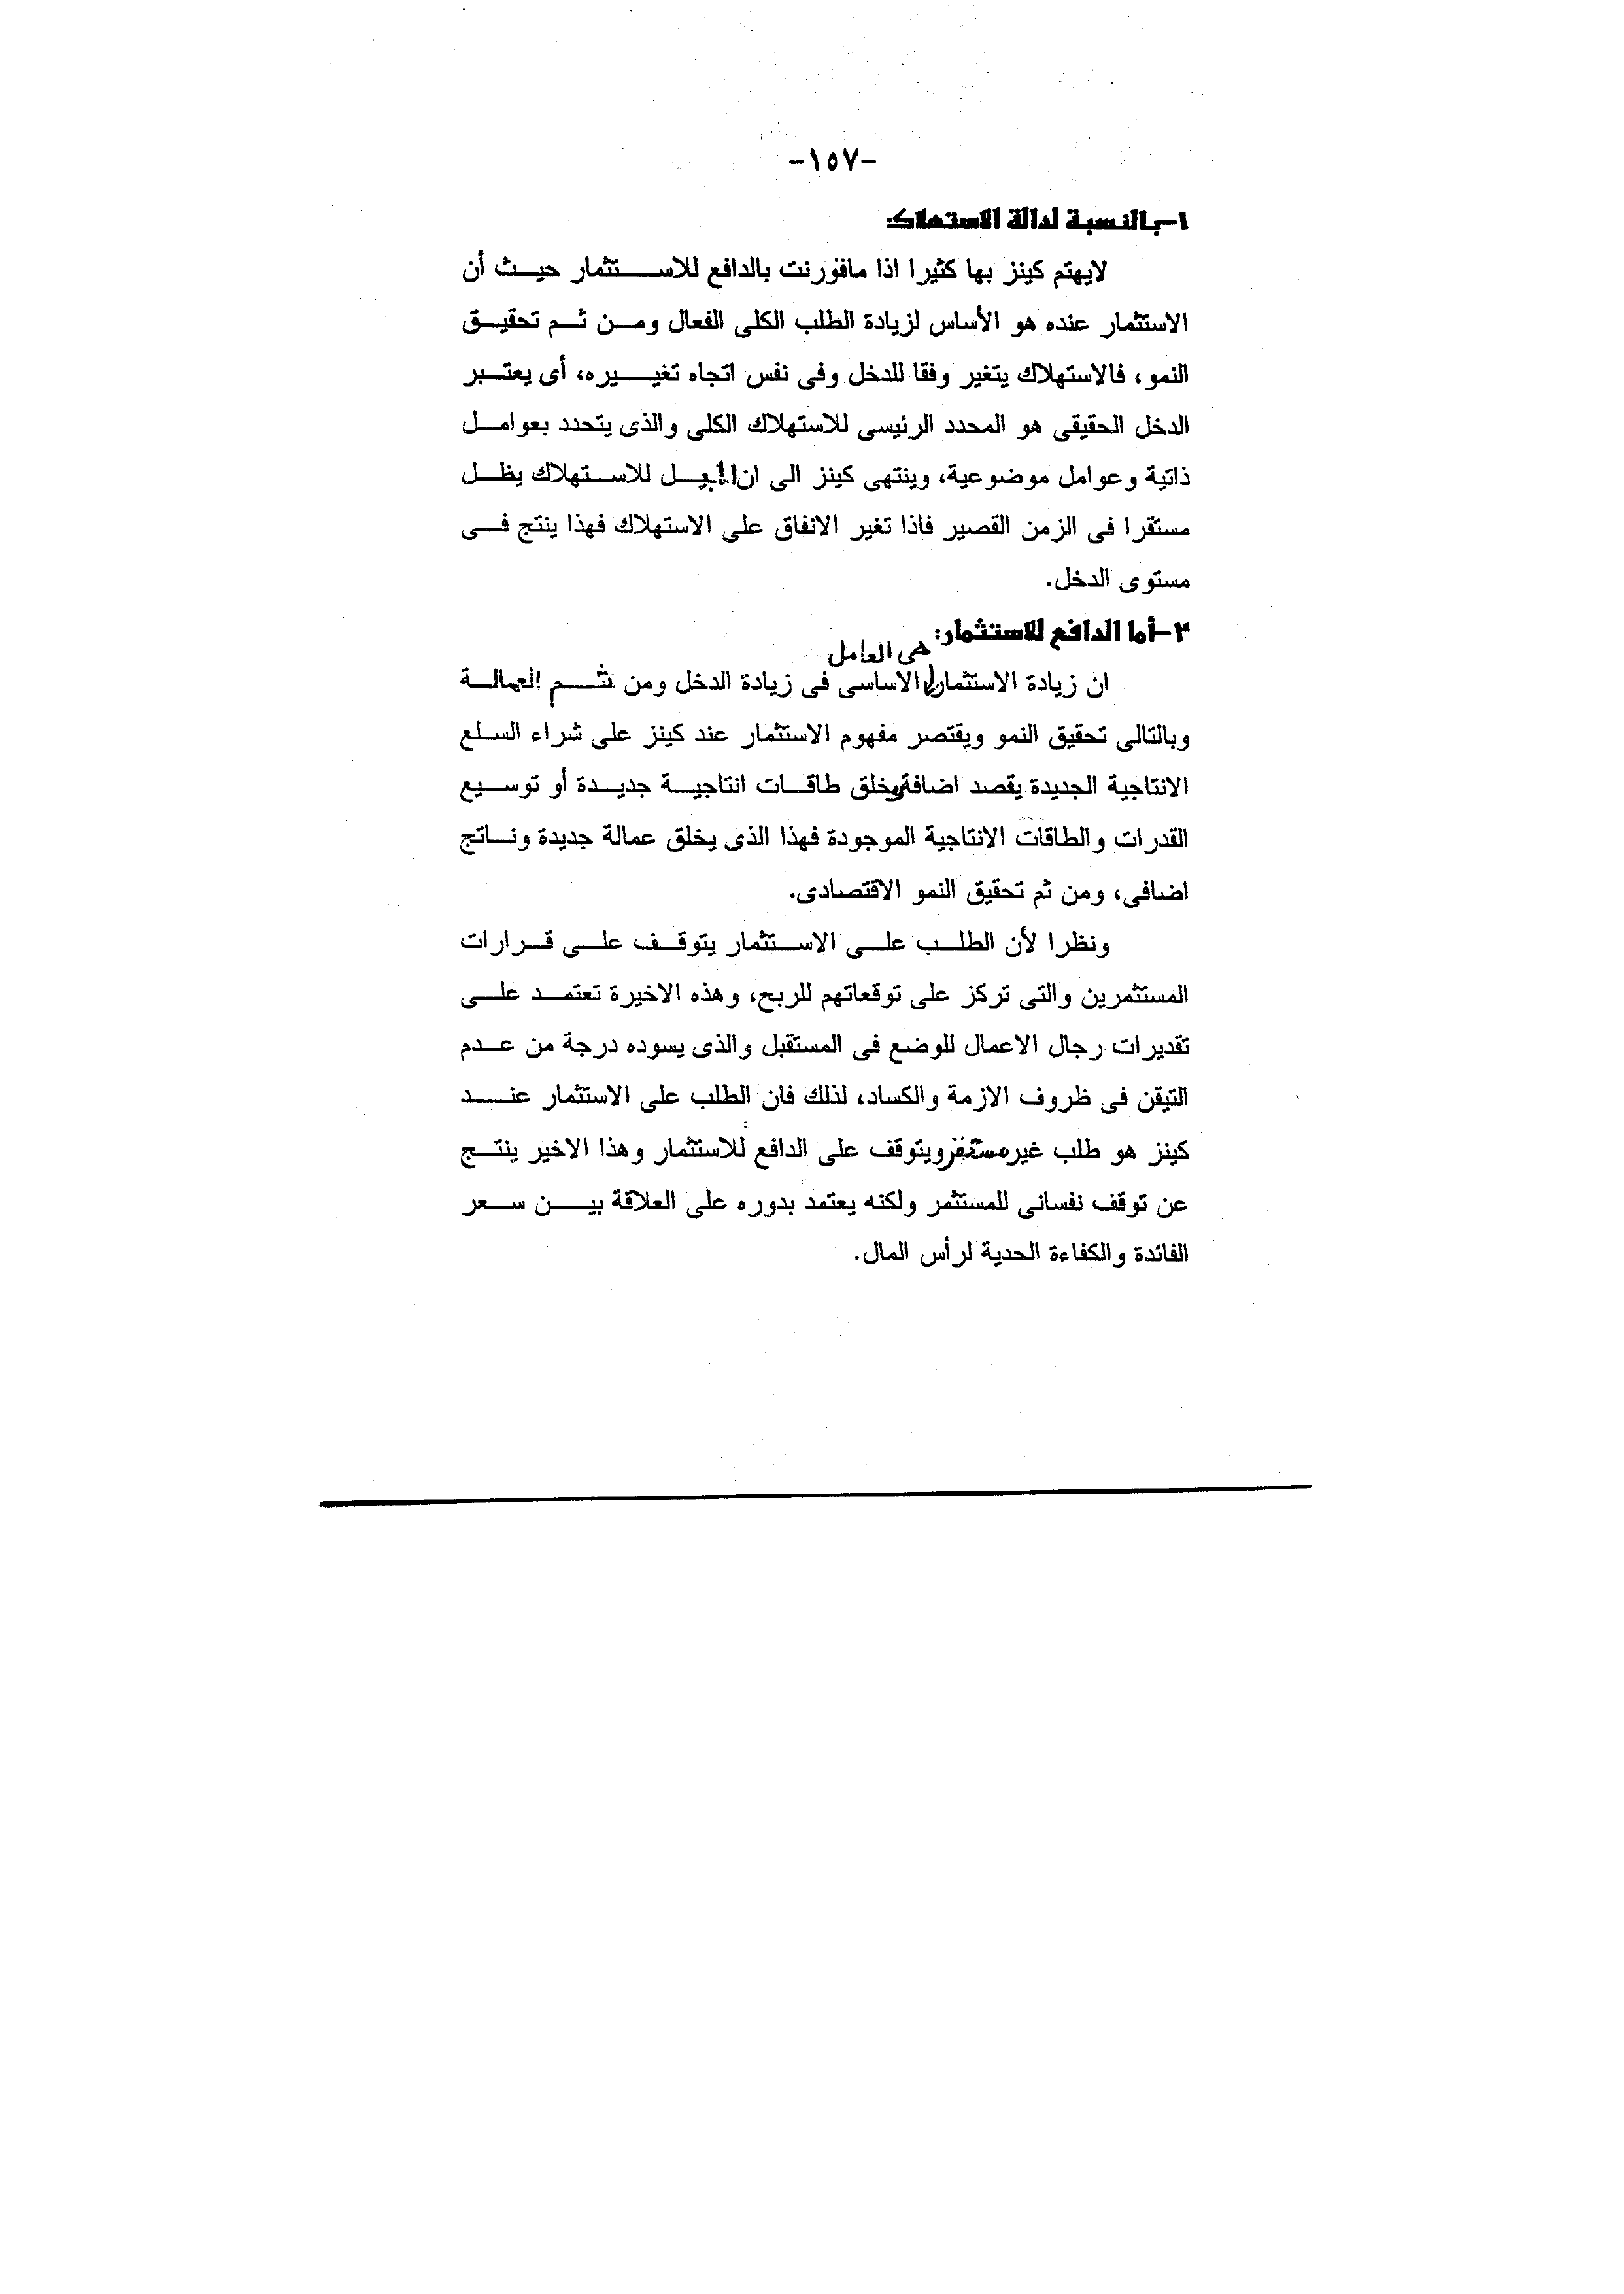 -١٥٧-
١-بالنسبة لدالة الاستهلاك:
لايهتم كينز بها كثيرا اذا ماقورنت بالدافع للاستثمار حيث أن
الاستثمار عنده هو الأساس لزيادة الطلب الكلى الفعال ومن ثم تحقيق
النمو، فالاستهلاك يتغير وفقا للدخل وفى نفس اتجاه تغييره، أى يعتبر
الدخل الحقيقى هو المحدد الرئيسى للاستهلاك الكلى والذى يتحدد بعوامل
ذاتية وعوامل موضوعية، وينتهى كينز الى ان الميل للاستهلاك يظل
مستقرا فى الزمن القصير فاذا تغير الانفاق على الاستهلاك فهذا ينتج فى
مستوى الدخل.
٢-أما الدافع للاستثمار:
هى العامل
ان زيادة الاستثمار الاساسى فى زيادة الدخل ومن ثم العمالة
وبالتالى تحقيق النمو ويقتصر مفهوم الاستثمار عند كينز على شراء السلع
الانتاجية الجديدة يقصد اضافة وخلق طاقات انتاجية جديدة أو توسيع
القدرات والطاقات الانتاجية الموجودة فهذا الذى يخلق عمالة جديدة وناتج
اضافى، ومن ثم تحقيق النمو الاقتصادى.
ونظرا لأن الطلب على الاستثمار يتوقف على قرارات
المستثمرين والتى تركز على توقعاتهم للربح، وهذه الاخيرة تعتمد على
تقديرات رجال الاعمال للوضع فى المستقبل والذى يسوده درجة من عدم
التيقن فى ظروف الازمة والكساد، لذلك فان الطلب على الاستثمار عند
كينز هو طلب غير مستقر ويتوقف على الدافع للاستثمار وهذا الاخير ينتج
عن توقف نفسانى للمستثمر ولكنه يعتمد بدوره على العلاقة بين سعر
الفائدة والكفاءة الحدية لرأس المال.